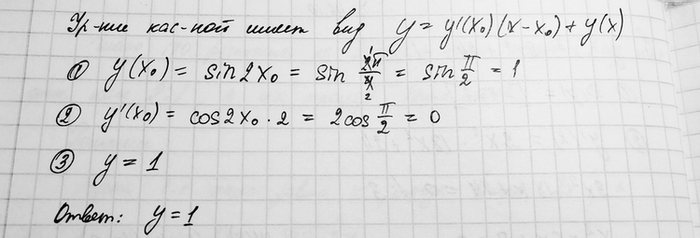 Ур-ние кас-ной имеет вид y = y'(x₀)(x-x₀)+y(x)
① y(x₀) = sin2x₀ = sin 2π/4 = sin π/2 = 1
② y'(x₀) = cos2x₀·2 = 2cos π/2 = 0
③ y = 1
Ответ: y=1